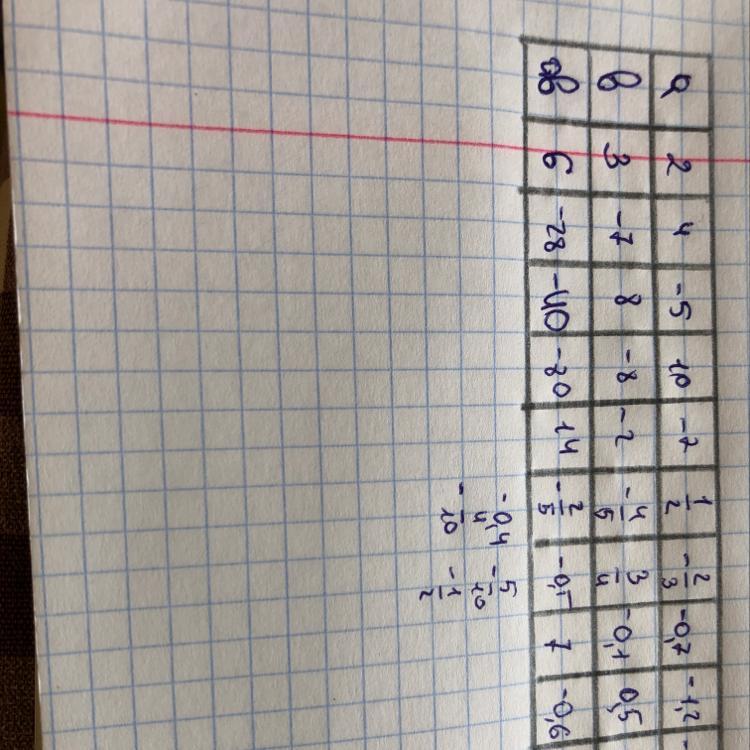 a 2 4 -5 10 -7 1/2 -2/3 -0,7 -1,2
в 3 -7 8 -8 -2 -4/5 3/4 -0,1 0,5
ав 6 -28 -40 -80 14 -2/5 -0,5 7 -0,6
-0,4 5
-4/10 -5/10
-1/2